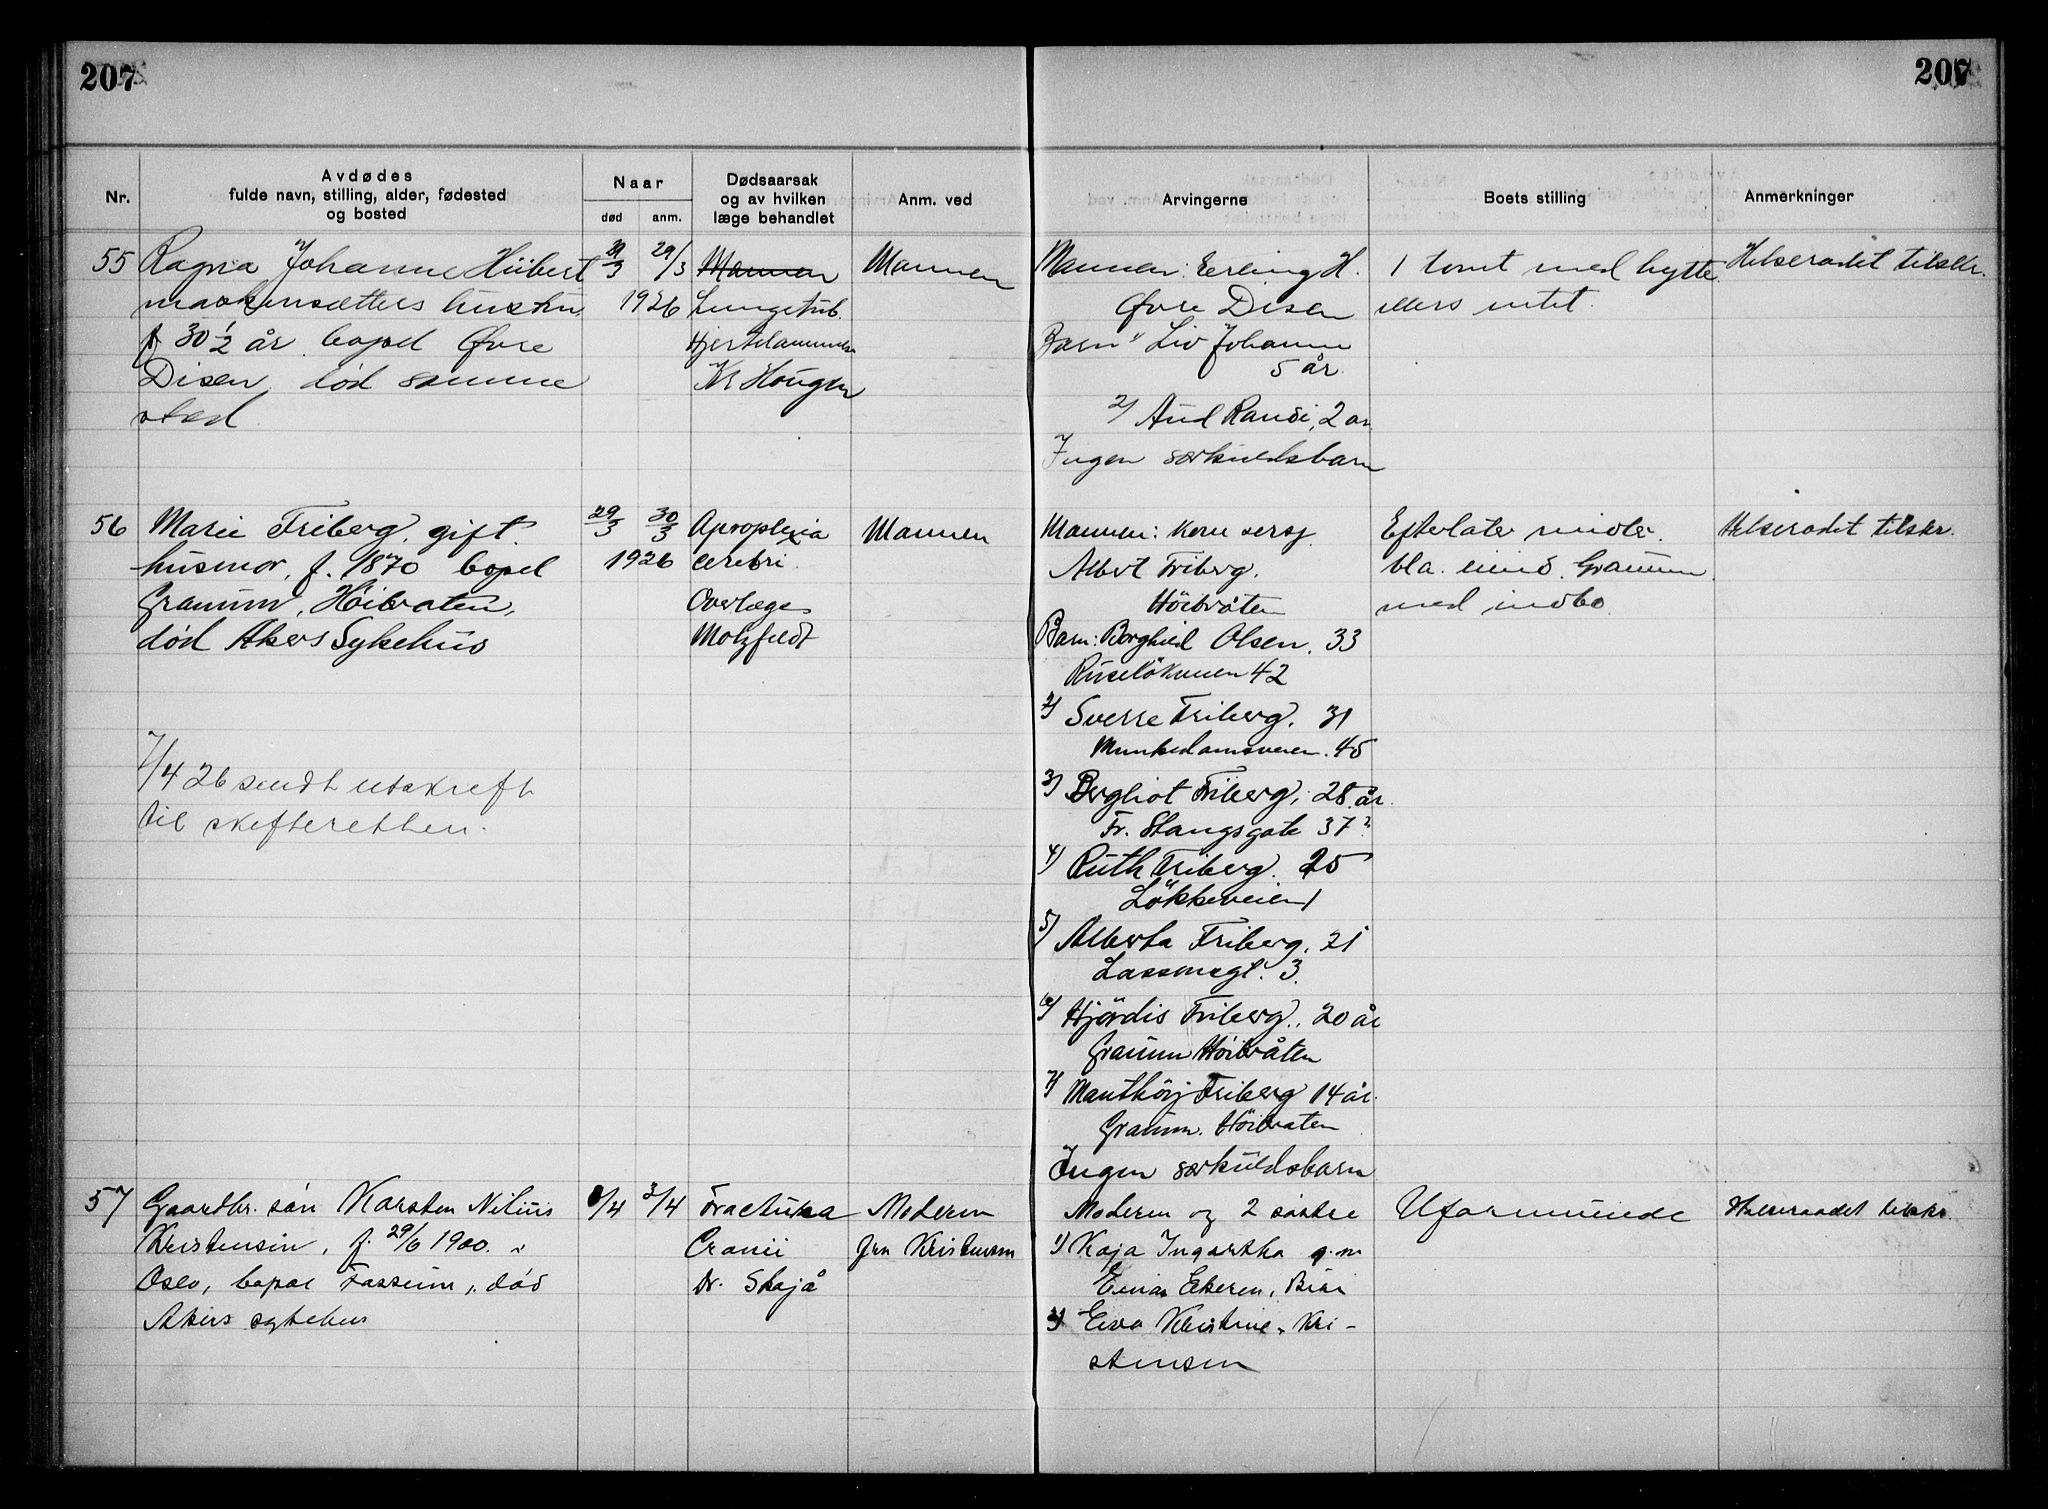 207
207
Nr.
Avdødes
fulde navn, stilling, alder, fødested
og bosted
Naar
død
anm.
Dødsaarsak
og av hvilken
læge behandlet
Anm. ved
Arvingerne
Boets stilling
Anmerkninger
55
Ragna Johanne Hübert
maskinsætters hustru,
30 1/2 år bopel Øvre
Disen, død samme
sted
29/3
1926
Mannen
Lungetub.
Hjertelammelse
Kr Hougen
Mannen
Mannen: Erling H.
Øvre Disen
Barn 1) Liv Johanne
5 år
2) Aud Randi, 2 år
Ingen særkuldsbarn
1 tomt med hytte
ellers intet.
Helseradet tilskr.
56
Marie Friberg, gift.
husmor, f. 1870 bopel
Granum, Höibraten,
død Akers Sykehus
29/3
30/3
1926
Aproplexia
cerebri.
Overlæge
Motzfeldt
Mannen
7/4 26 sendt utskrift
til skifteretten.
Mannen: Korn sersj
Albert Friberg.
Höibråten
Barn: Borghild Olsen. 33
Ruselökveien 42
2) Sverre Friberg. 31
Munkedamsveien. 45
3) Bergliot Friberg, 28 år.
Fr. Stangsgate 37
4) Ruth Friberg. 25
Lökkeveien 1
5) Alberta Friberg. 21
Lassonsgt. 3.
6) Hjördis Friberg., 20 år
Granum Höibråten
7) Friberg 14 år.
Granum. Höibraten
Ingen særkuldsbarn
Efterlater midler.
bla. eiend. Granum
med indbo.
Helseradet tilskr.
57
Gaardbr. sön Karsten Nilius
Kristensen, f. 29/6 1900.
Oslo, bopæl Fossum, död
Akers sykehus
/4
3/4
Fractura
Cranii
Dr. Skajå
Moderen
fru Kristensen
Moderen og 2 söstre
1) Kaja Ingartha g.m
Einar Ekeren, Biri
2) Eva Kristine Kri-
stensen
Uformuende
Helseraadet tilskr.